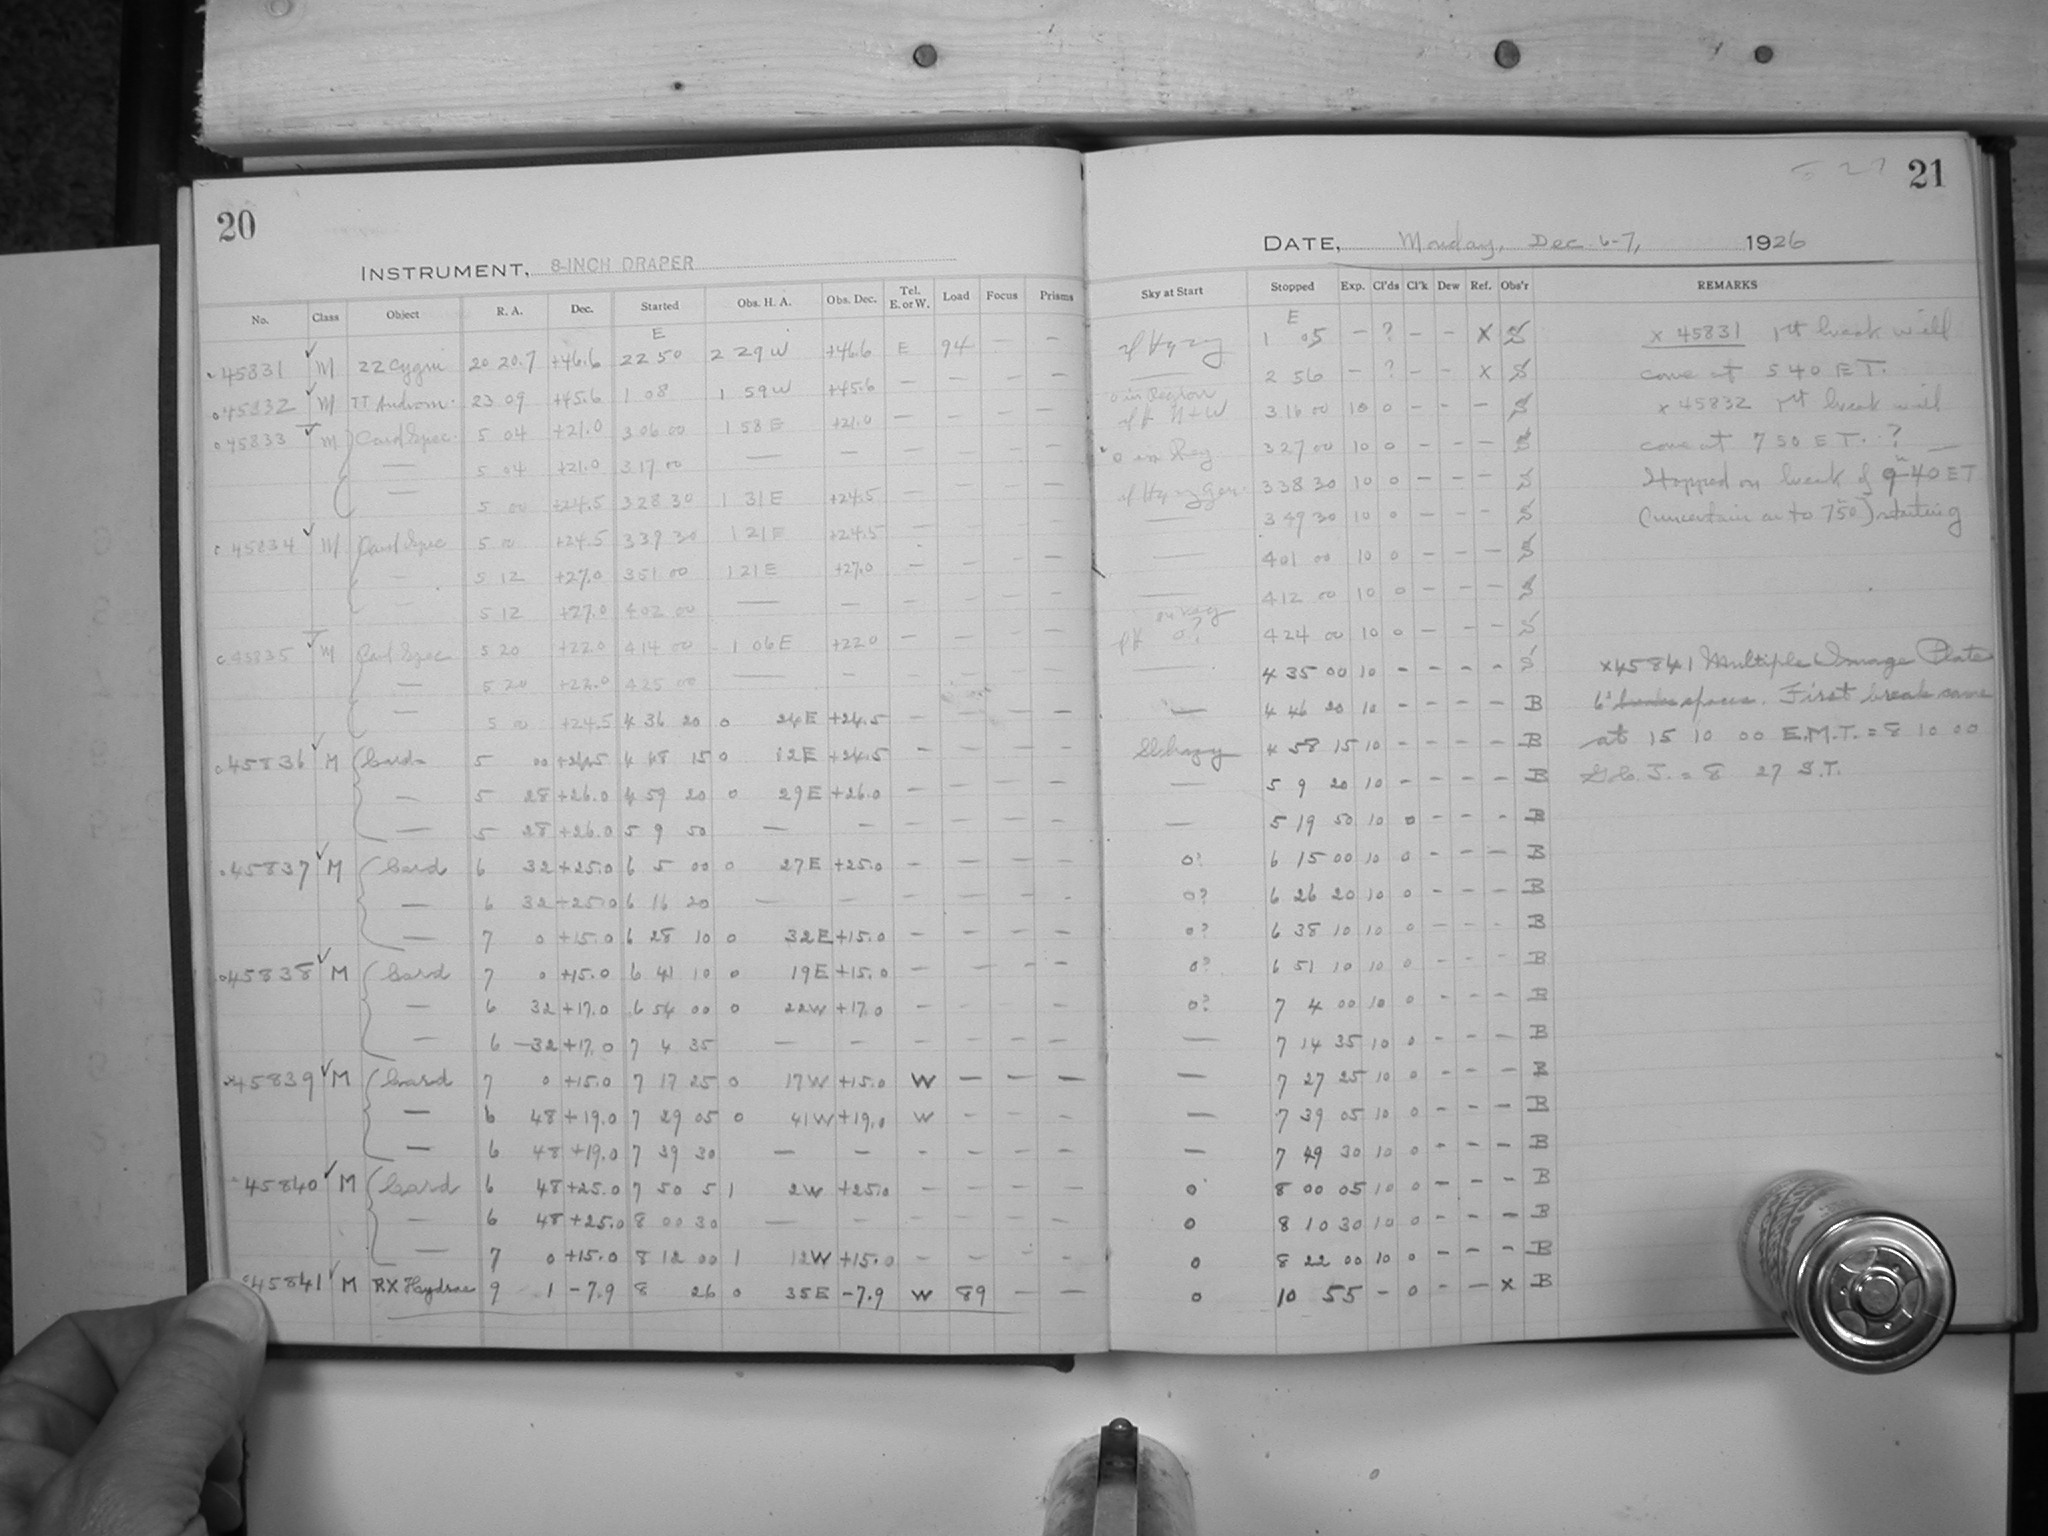 20
INSTRUMENT, 8-INCH DRAPER
No. Class Object R. A. Dec. Started Obs. H. A. Obs. Dec. Tel. E. or W. Load Focus Prisms
E
45831 M ZZ Cygni 20 20.7 +46.6 22 50 2 29 W +46.6 E 94 — —
45832 M TT Androm. 23 09 +45.6 1 08 1 59 W +45.6 — — — —
45833 M Card Spec. 5 04 +21.0 3 06 00 1 58 E +21.0 — — — —
— 5 04 +21.0 3 17 00 — — — — — —
— 5 00 +24.5 3 28 30 1 31 E +24.5 — — — —
45834 M Card Spec 5 00 +24.5 3 39 30 1 21 E +24.5 — — — —
— 5 12 +27.0 3 51 00 1 21 E +27.0 — — — —
— 5 12 +27.0 4 02 00 — — — — — —
45835 M Card Spec 5 20 +22.0 4 14 00 1 06 E +22.0 — — — —
— 5 20 +22.0 4 25 00 — — — — — —
— 5 00 +24.5 4 36 20 0 24 E +24.5 — — — —
45836 M Card 5 00 +24.5 4 48 15 0 12 E +24.5 — — — —
— 5 28 +26.0 4 59 20 0 29 E +26.0 — — — —
— 5 28 +26.0 5 9 50 — — — — — —
45837 M Card 6 32 +25.0 6 5 00 0 27 E +25.0 — — — —
— 6 32 +25.0 6 16 20 — — — — — —
— 7 0 +15.0 6 28 10 0 32 E +15.0 — — — —
45838 M Card 7 0 +15.0 6 41 10 0 19 E +15.0 — — — —
— 6 32 +17.0 6 54 00 0 22 W +17.0 — — — —
— 6 32 +17.0 7 4 35 — — — — — —
45839 M Card 7 0 +15.0 7 17 25 0 17 W +15.0 W — — —
— 6 48 +19.0 7 29 05 0 41 W +19.0 W — — —
— 6 48 +19.0 7 39 30 — — — — — —
45840 M Card 6 48 +25.0 7 50 5 1 2 W +25.0 — — — —
— 6 48 +25.0 8 00 30 — — — — — —
— 7 0 +15.0 8 12 00 1 12 W +15.0 — — — —
45841 M RX Hydrae 9 1 -7.9 8 26 0 35 E -7.9 W 89 — —
21
DATE, Monday, Dec 6-7, 1926
Sky at Start Stopped Exp. Cl'ds Cl'k Dew Ref. Obs'r REMARKS
E
1 05 — ? — — X S
— 2 56 — ? — — X S
0 in Region 3 16 00 10 0 — — — S
0 in Reg 3 27 00 10 0 — — — S
3 38 30 10 0 — — — S
— 3 49 30 10 0 — — — S
— 4 01 00 10 0 — — — S
— 4 12 00 10 0 — — — S
4 24 00 10 0 — — — S
— 4 35 00 10 — — — — S
— 4 46 20 10 — — — — B
4 58 15 10 — — — — B
— 5 9 20 10 — — — — B
— 5 19 50 10 0 — — — B
0? 6 15 00 10 0 — — — B
0? 6 26 20 10 0 — — — B
0? 6 38 10 10 0 — — — B
0? 6 51 10 10 0 — — — B
0? 7 4 00 10 0 — — — B
— 7 14 35 10 0 — — — B
— 7 27 25 10 0 — — — B
— 7 39 05 10 0 — — — B
— 7 49 30 10 0 — — — B
0 8 00 05 10 0 — — — B
0 8 10 30 10 0 — — — B
0 8 22 00 10 0 — — — B
0 10 55 — 0 — — X B
x 45831 1st break will
come at 5 40 E T.
x 45832 1st break will
come at 7 50 E T. ?
Stopped on break of 9 40 ET
(uncertain as to 750) starting
x45841 Multiple Image Plate
6 breaks spaces. First break came
at 15 10 00 E.M.T. = 8 10 00
= 8 27 S.T.